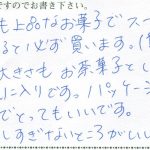 ですのでお書き下さい。
も上品なお菓子でスー
ると必ず買います。(
大きさも お茶菓子とし
に入りです。パッケー
でとってもいいです。
しすぎないところがいい